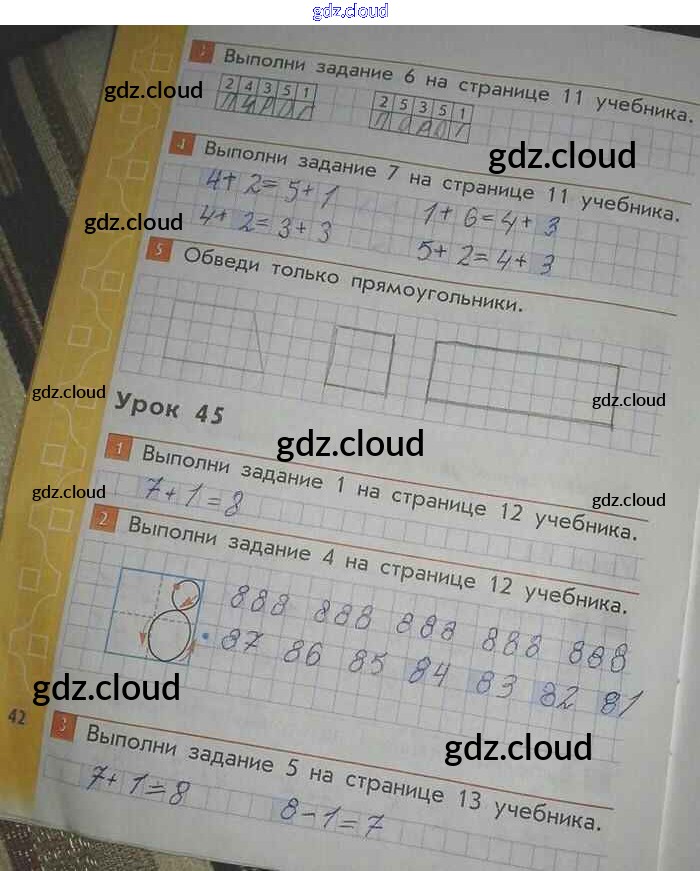 gdz.cloud
3 Выполни задание 6 на странице 11 учебника.
gdz.cloud
2 4 3 5 1
2 5 3 5 1
gdz.cloud
4 Выполни задание 7 на странице 11 учебника.
4+2=5+1
1+6=4+3
gdz.cloud
4+2=3+3
5+2=4+3
5 Обведи только прямоугольники.
gdz.cloud
gdz.cloud
Урок 45
gdz.cloud
1 Выполни задание 1 на странице 12 учебника.
7+1=8
gdz.cloud
gdz.cloud
2 Выполни задание 4 на странице 12 учебника.
888 888 888 888 888
87 86 85 84 83 82 81
gdz.cloud
42
3 Выполни задание 5 на странице 13 учебника.
gdz.cloud
7+1=8
8-1=7